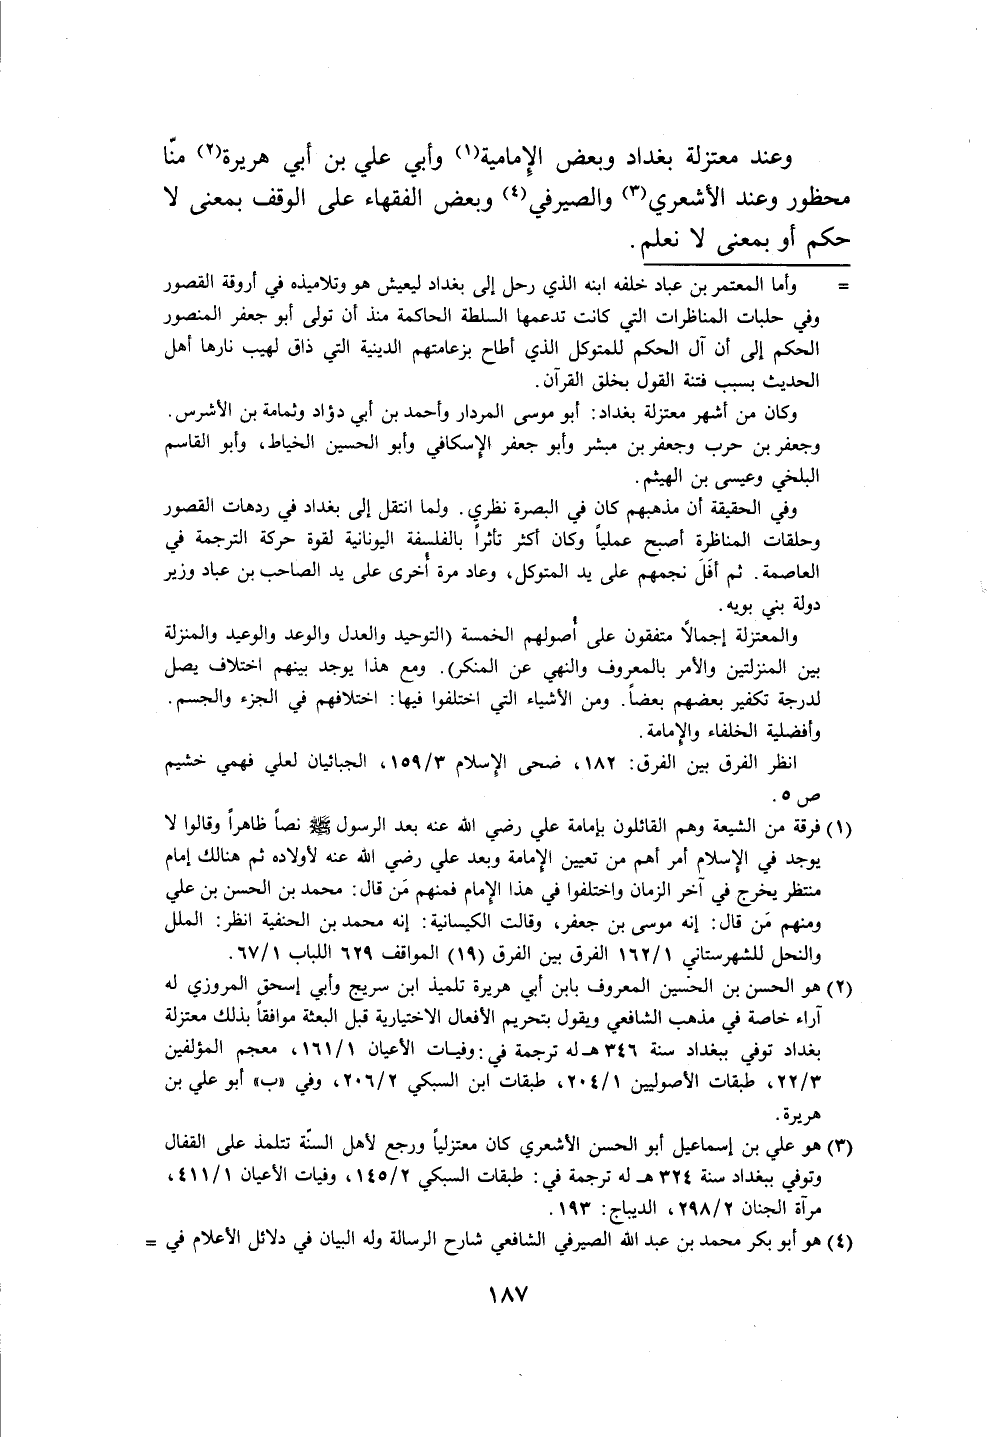 وعند معتزلة بغداد وبعض الإمامية(١) وأبي علي بن أبي هريرة(٢) منّا
محظور وعند الأشعري(٣) والصيرفي(٤) وبعض الفقهاء على الوقف بمعنى لا
حكم أو بمعنى لا نعلم.
= وأما المعتمر بن عباد خلفه ابنه الذي رحل إلى بغداد ليعيش هو وتلاميذه في أروقة القصور
وفي حلبات المناظرات التي كانت تدعمها السلطة الحاكمة منذ أن تولى أبو جعفر المنصور
الحكم إلى أن آل الحكم للمتوكل الذي أطاح بزعامتهم الدينية التي ذاق لهيب نارها أهل
الحديث بسبب فتنة القول بخلق القرآن.
وكان من أشهر معتزلة بغداد: أبو موسى المردار وأحمد بن أبي دؤاد وثمامة بن الأشرس.
وجعفر بن حرب وجعفر بن مبشر وأبو جعفر الإسكافي وأبو الحسين الخياط، وأبو القاسم
البلخي وعيسى بن الهيثم.
وفي الحقيقة أن مذهبهم كان في البصرة نظري. ولما انتقل إلى بغداد في ردهات القصور
وحلقات المناظرة أصبح عملياً وكان أكثر تأثراً بالفلسفة اليونانية لقوة حركة الترجمة في
العاصمة. ثم أفَلَ نجمهم على يد المتوكل، وعاد مرة أُخرى على يد الصاحب بن عباد وزير
دولة بني بويه.
والمعتزلة إجمالًا متفقون على أُصولهم الخمسة (التوحيد والعدل والوعد والوعيد والمنزلة
بين المنزلتين والأمر بالمعروف والنهي عن المنكر). ومع هذا يوجد بينهم اختلاف يصل
لدرجة تكفير بعضهم بعضاً. ومن الأشياء التي اختلفوا فيها: اختلافهم في الجزء والجسم.
وأفضلية الخلفاء والإمامة.
انظر الفرق بين الفرق: ١٨٢، ضحى الإسلام ١٥٩/٣، الجبائيان لعلي فهمي خشيم
ص ٥.
(١) فرقة من الشيعة وهم القائلون بإمامة علي رضي الله عنه بعد الرسول ﷺ نصاً ظاهراً وقالوا لا
يوجد في الإسلام أمر أهم من تعيين الإمامة وبعد علي رضي الله عنه لأولاده ثم هنالك إمام
منتظر يخرج في آخر الزمان واختلفوا في هذا الإمام فمنهم مَن قال: محمد بن الحسن بن علي
ومنهم مَن قال: إنه موسى بن جعفر، وقالت الكيسانية: إنه محمد بن الحنفية انظر: الملل
والنحل للشهرستاني ١٦٢/١ الفرق بين الفرق (١٩) المواقف ٦٢٩ اللباب ٦٧/١.
(٢) هو الحسن بن الحسين المعروف بابن أبي هريرة تلميذ ابن سريج وأبي إسحق المروزي له
آراء خاصة في مذهب الشافعي ويقول بتحريم الأفعال الاختيارية قبل البعثة موافقاً بذلك معتزلة
بغداد توفي ببغداد سنة ٣٤٦ هـ له ترجمة في: وفيات الأعيان ١٦١/١، معجم المؤلفين
٢٢/٣، طبقات الأصوليين ٢٠٤/١، طبقات ابن السبكي ٢٠٦/٢، وفي «ب» أبو علي بن
هريرة.
(٣) هو علي بن إسماعيل أبو الحسن الأشعري كان معتزلياً ورجع لأهل السنّة تتلمذ على القفال
وتوفي ببغداد سنة ٣٢٤ هـ له ترجمة في: طبقات السبكي ١٤٥/٢، وفيات الأعيان ٤١١/١،
مرآة الجنان ٢٩٨/٢، الديباج: ١٩٣.
(٤) هو أبو بكر محمد بن عبد الله الصيرفي الشافعي شارح الرسالة وله البيان في دلائل الأعلام في =
١٨٧